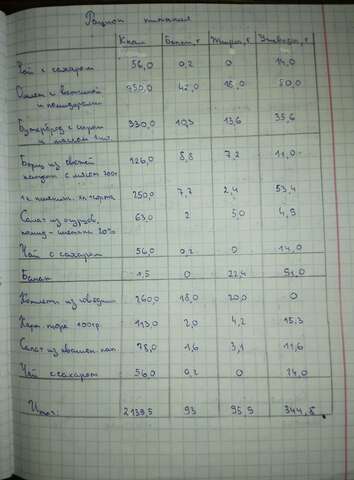 Рацион питания
Ккал Белки, г Жиры, г Углеводы, г
Чай с сахаром 56,0 0,2 0 14,0
Омлет с ветчиной 750,0 42,0 18,0 80,0
и помидорами
Бутерброд с сыром 330,0 10,3 13,6 35,6
и маслом
Борщ из свежей 126,0 8,8 7,2 11,0
капуст. с мясом 300г
пшенич. 250,0 7,7 2,4 53,4
Салат из огурцов, 63,0 2 5,0 4,8
помид - сметана 20%
Чай с сахаром 56,0 0,2 0 14,0
Банан 1,5 0 22,4 91,0
Котлеты из говядин 260,0 18,0 20,0 0
Карт. пюре 100гр 113,0 2,0 4,2 15,3
Салат из квашен. кап. 78,0 1,6 3,1 11,6
Чай с сахаром 56,0 0,2 0 14,0
Итог: 2139,5 93 95,9 344,8